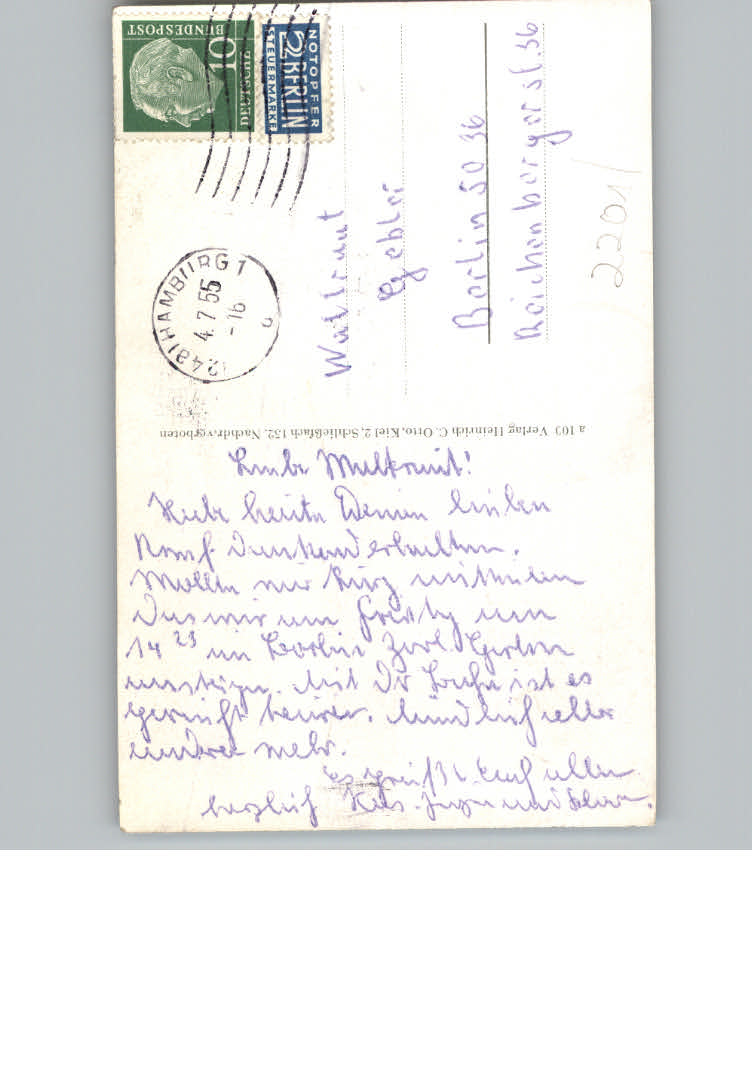 DEUTSCHE
BUNDESPOST
10
NOTOPFER
2 BERLIN
STEUERMARKE
(24a) HAMBURG 1
4.7.55
-16
Waltraut
Gebler
Berlin SO 36
Reichenbergerst. 36
2201
a 100 Verlag Heinrich C. Otto, Kiel 2, Schließfach 152. Nachdr. verboten
Liebe Waltraut!
Habe heute Deinen lieben
dankend erhalten.
Wollen nur kurz mitteilen
das wir am um
14 23 in Berlin Zool. Garten
Mit der ist es
Mündlich alles
andere mehr.
Es grüßt Euch allen
herzlich und